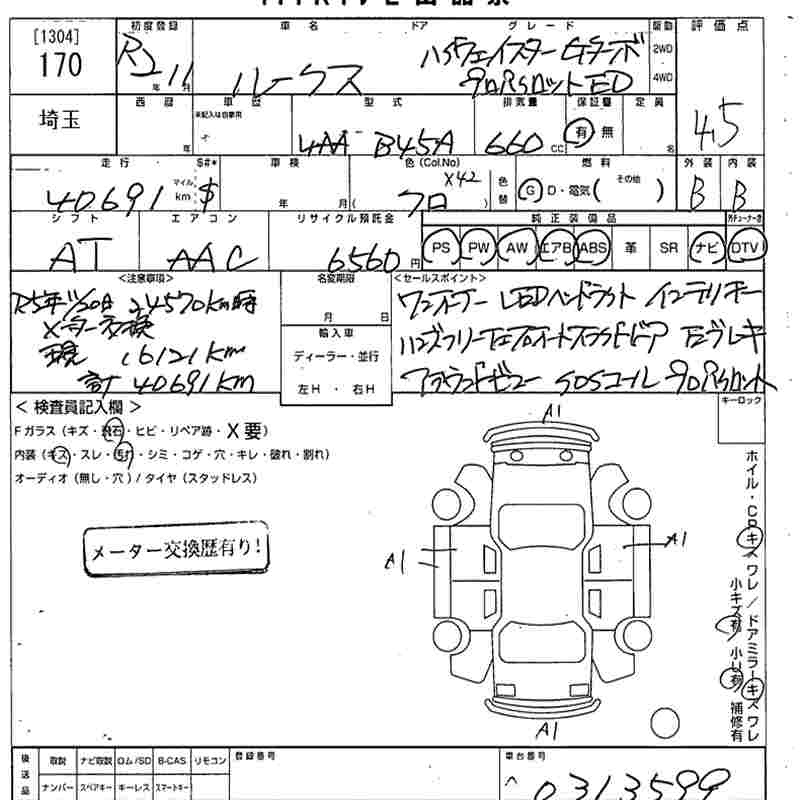 [1304]
170
初度登録 車名 ドア グレード 駆動 評価点
R2 11 年 月
ルークス
ハイウェイスターGターボ
プロパイロットED
2WD
4WD
埼玉
西暦 車歴 型式 排気量 保証書 定員
年 未記入は自家用 4AA B45A 660 CC 有 無 名
4.5
走行 $#* 車検 色(Col.No) 燃料 外装 内装
40691 マイル km $ 年 月 ( クロ X42 ) 色替 G D・電気( その他 ) B B
シフト エアコン リサイクル預託金 純正装備品
AT AAC 6560 円 PS PW AW エアB ABS 革 SR ナビ DTV
<注意事項> 名変期限 <セールスポイント>
R5年11/20日 24570km時
Xーター交換
現 16121km
計 40691km
月 日
輸入車
ディーラー・並行
左H・右H
ワンオーナー LEDヘッドライト インテリキー
ハンズフリー 左プロオートスライドドア Eブレーキ
アラウンドビュー SOSコール プロパイロット
キーロック
<検査員記入欄>
Fガラス(キズ・飛石・ヒビ・リペア跡・X要)
内装(キズ・スレ・汚れ・シミ・コゲ・穴・キレ・破れ・割れ)
オーディオ(無し・穴)/タイヤ(スタッドレス)
メーター交換歴有り!
A1
A1
A1
A1
ホイル・CPキズ ワレ/ドアミラーキズ ワレ
小キズ有 小U有 補修有
後送品 取説 ナビ取説 ロム/SD B-CAS リモコン 登録番号 車台番号
ナンバー スペアキー キーレス スマートキー 0313599